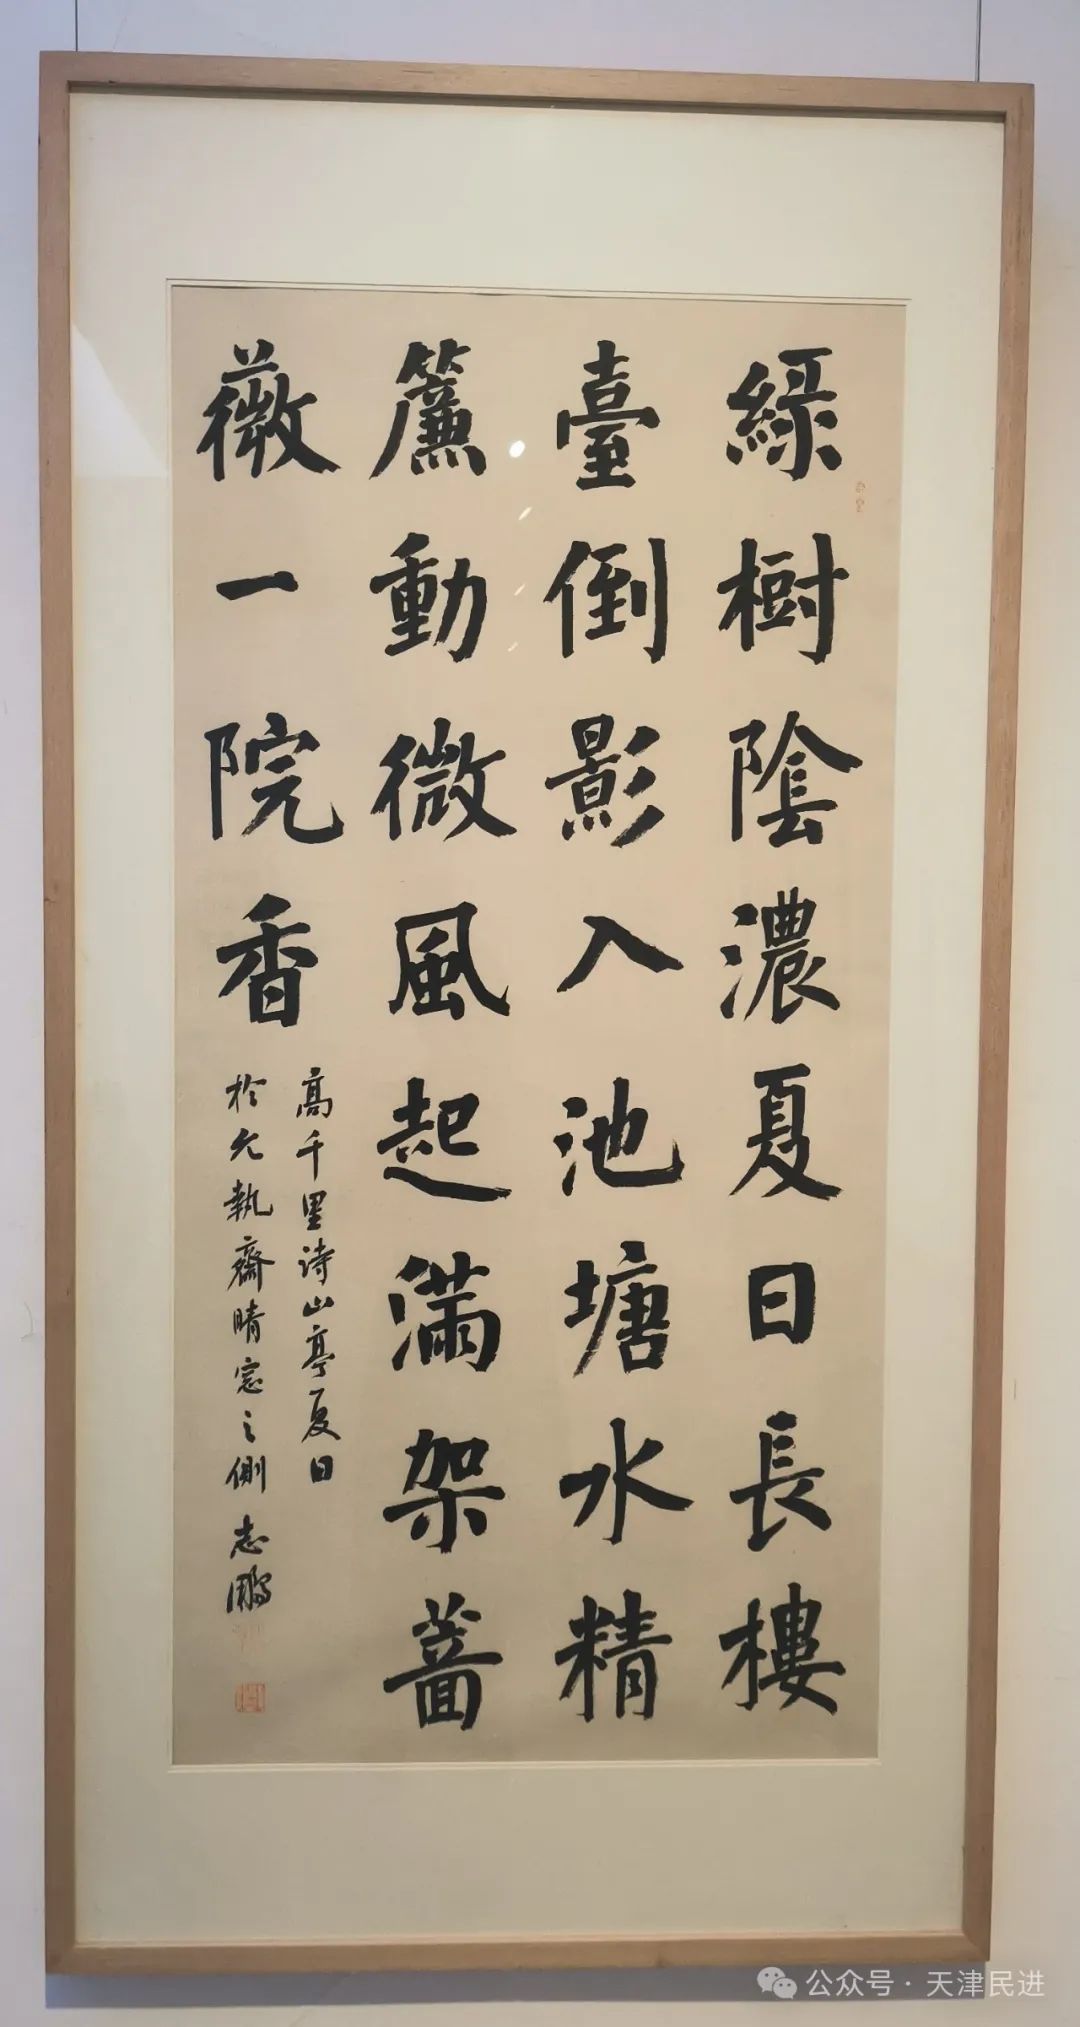 綠樹陰濃夏日長樓
臺倒影入池塘水精
簾動微風起滿架薔
薇一院香
高千里诗山亭夏日
於允執齋晴窓之側 志鵬
公众号·天津民进